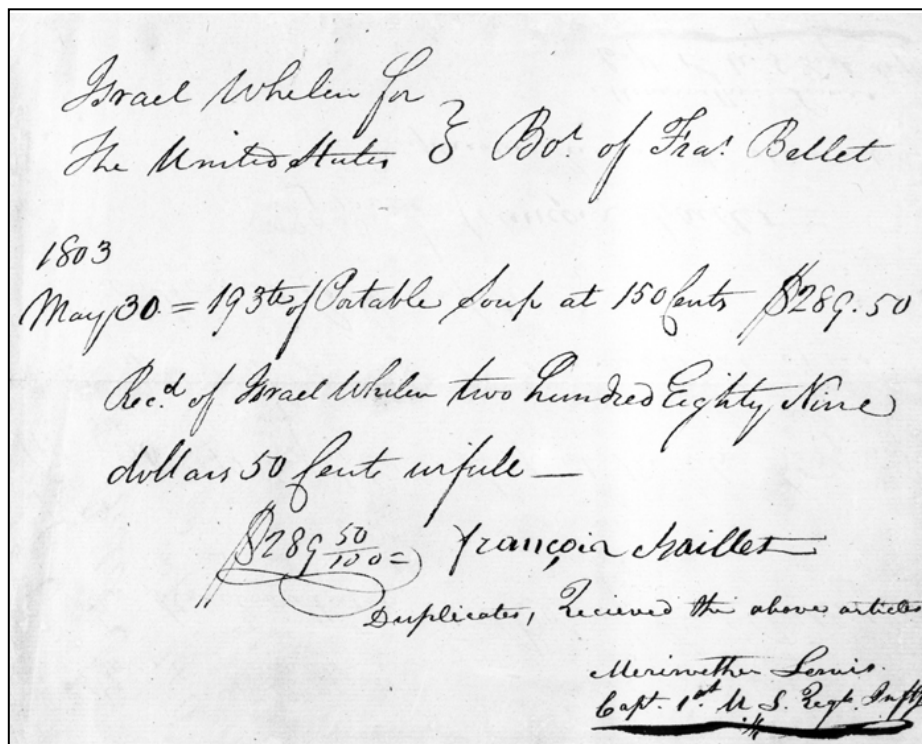 Israel Whelen for
The United States } Bot. of Fras. Bellet
1803
May 30. = 193 lb of Portable Soup at 150 Cents $289.50
Rec.d of Israel Whelen two hundred Eighty Nine
dollars 50 Cents in full —
$289 50/100 = François Baillet
Duplicates, Recieved the above articles
Meriwether Lewis.
Capt. 1st. U. S. Regt. Infty.